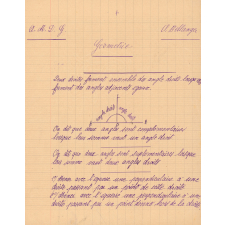 +
A. M. D. G
Géométrie
Deux droites forment ensemble des angles droits lorsqu'
forment des angles adjacents égaux.
angle droit angle droit
On dit que deux angles sont complémentaires
lorsque leur somme vaut un angle droit
On dit que deux angles sont supplémentaires lorsque
leur somme vaut deux angles droits
avec l'équerre une perpendiculaire à une
droite passant par un point de cette droite
avec l'équerre une perpendiculaire à une
droite passant par un point donné hors de la droite